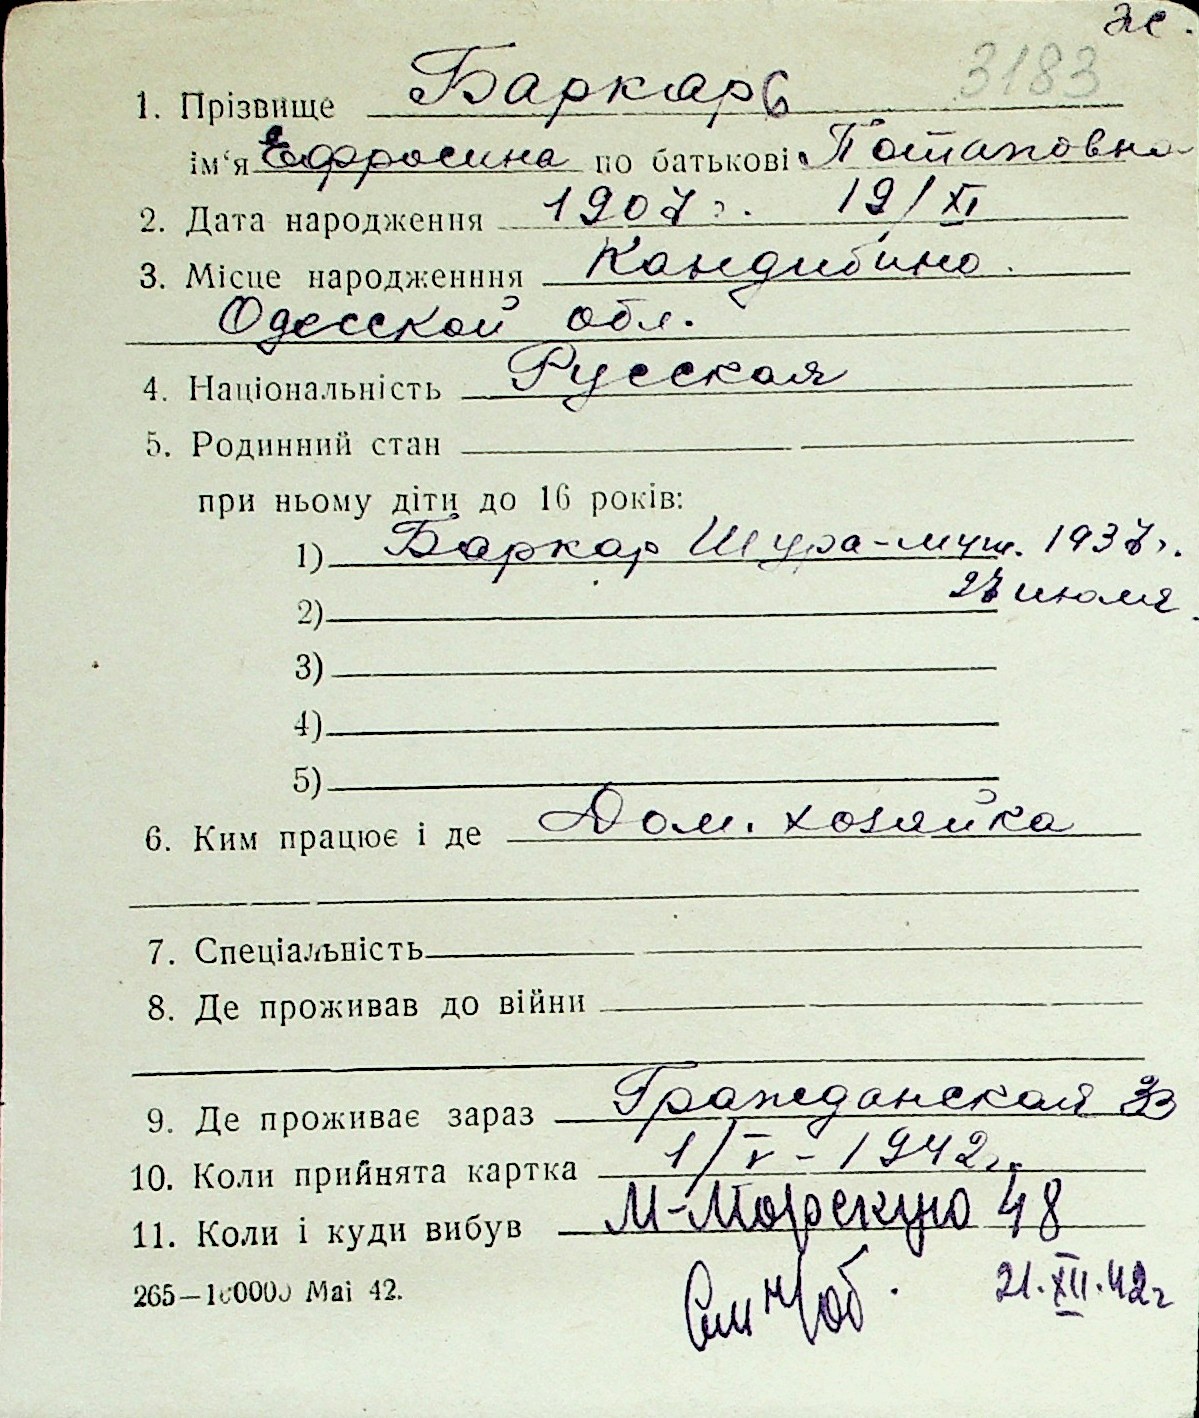 ж.
3183
1. Прізвище Баркарь
ім‘я Ефросина по батькові Потаповна
2. Дата народження 1907 г. 19/XI
3. Місце народженння Кандибино.
Одесской обл.
4. Національність Русская
5. Родинний стан
при ньому діти до 16 років:
1) Баркар Шура-муж. 1937г.
27 июля.
2)
3)
4)
5)
6. Ким працює і де Дом. хозяйка
7. Спеціальність
8. Де проживав до війни
9. Де проживає зараз Гражданская 33
10. Коли прийнята картка 1/V-1942г.
11. Коли і куди вибув М-Морскую 48
265—100000 Mai 42.
21.XII.42г